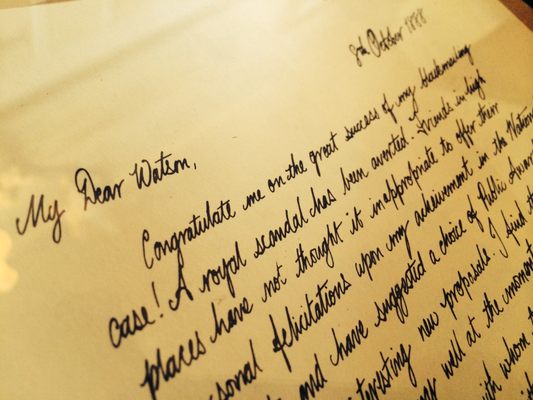 8th October 1888
My Dear Watson,
Congratulate me on the great success of my blackmailing
case! A royal scandal has been averted. Friends in high
places have not thought it inappropriate to offer them
personal felicitations upon my achievement in the
and have suggested a choice of Public
new proposals. I find
well at the moment
with whom